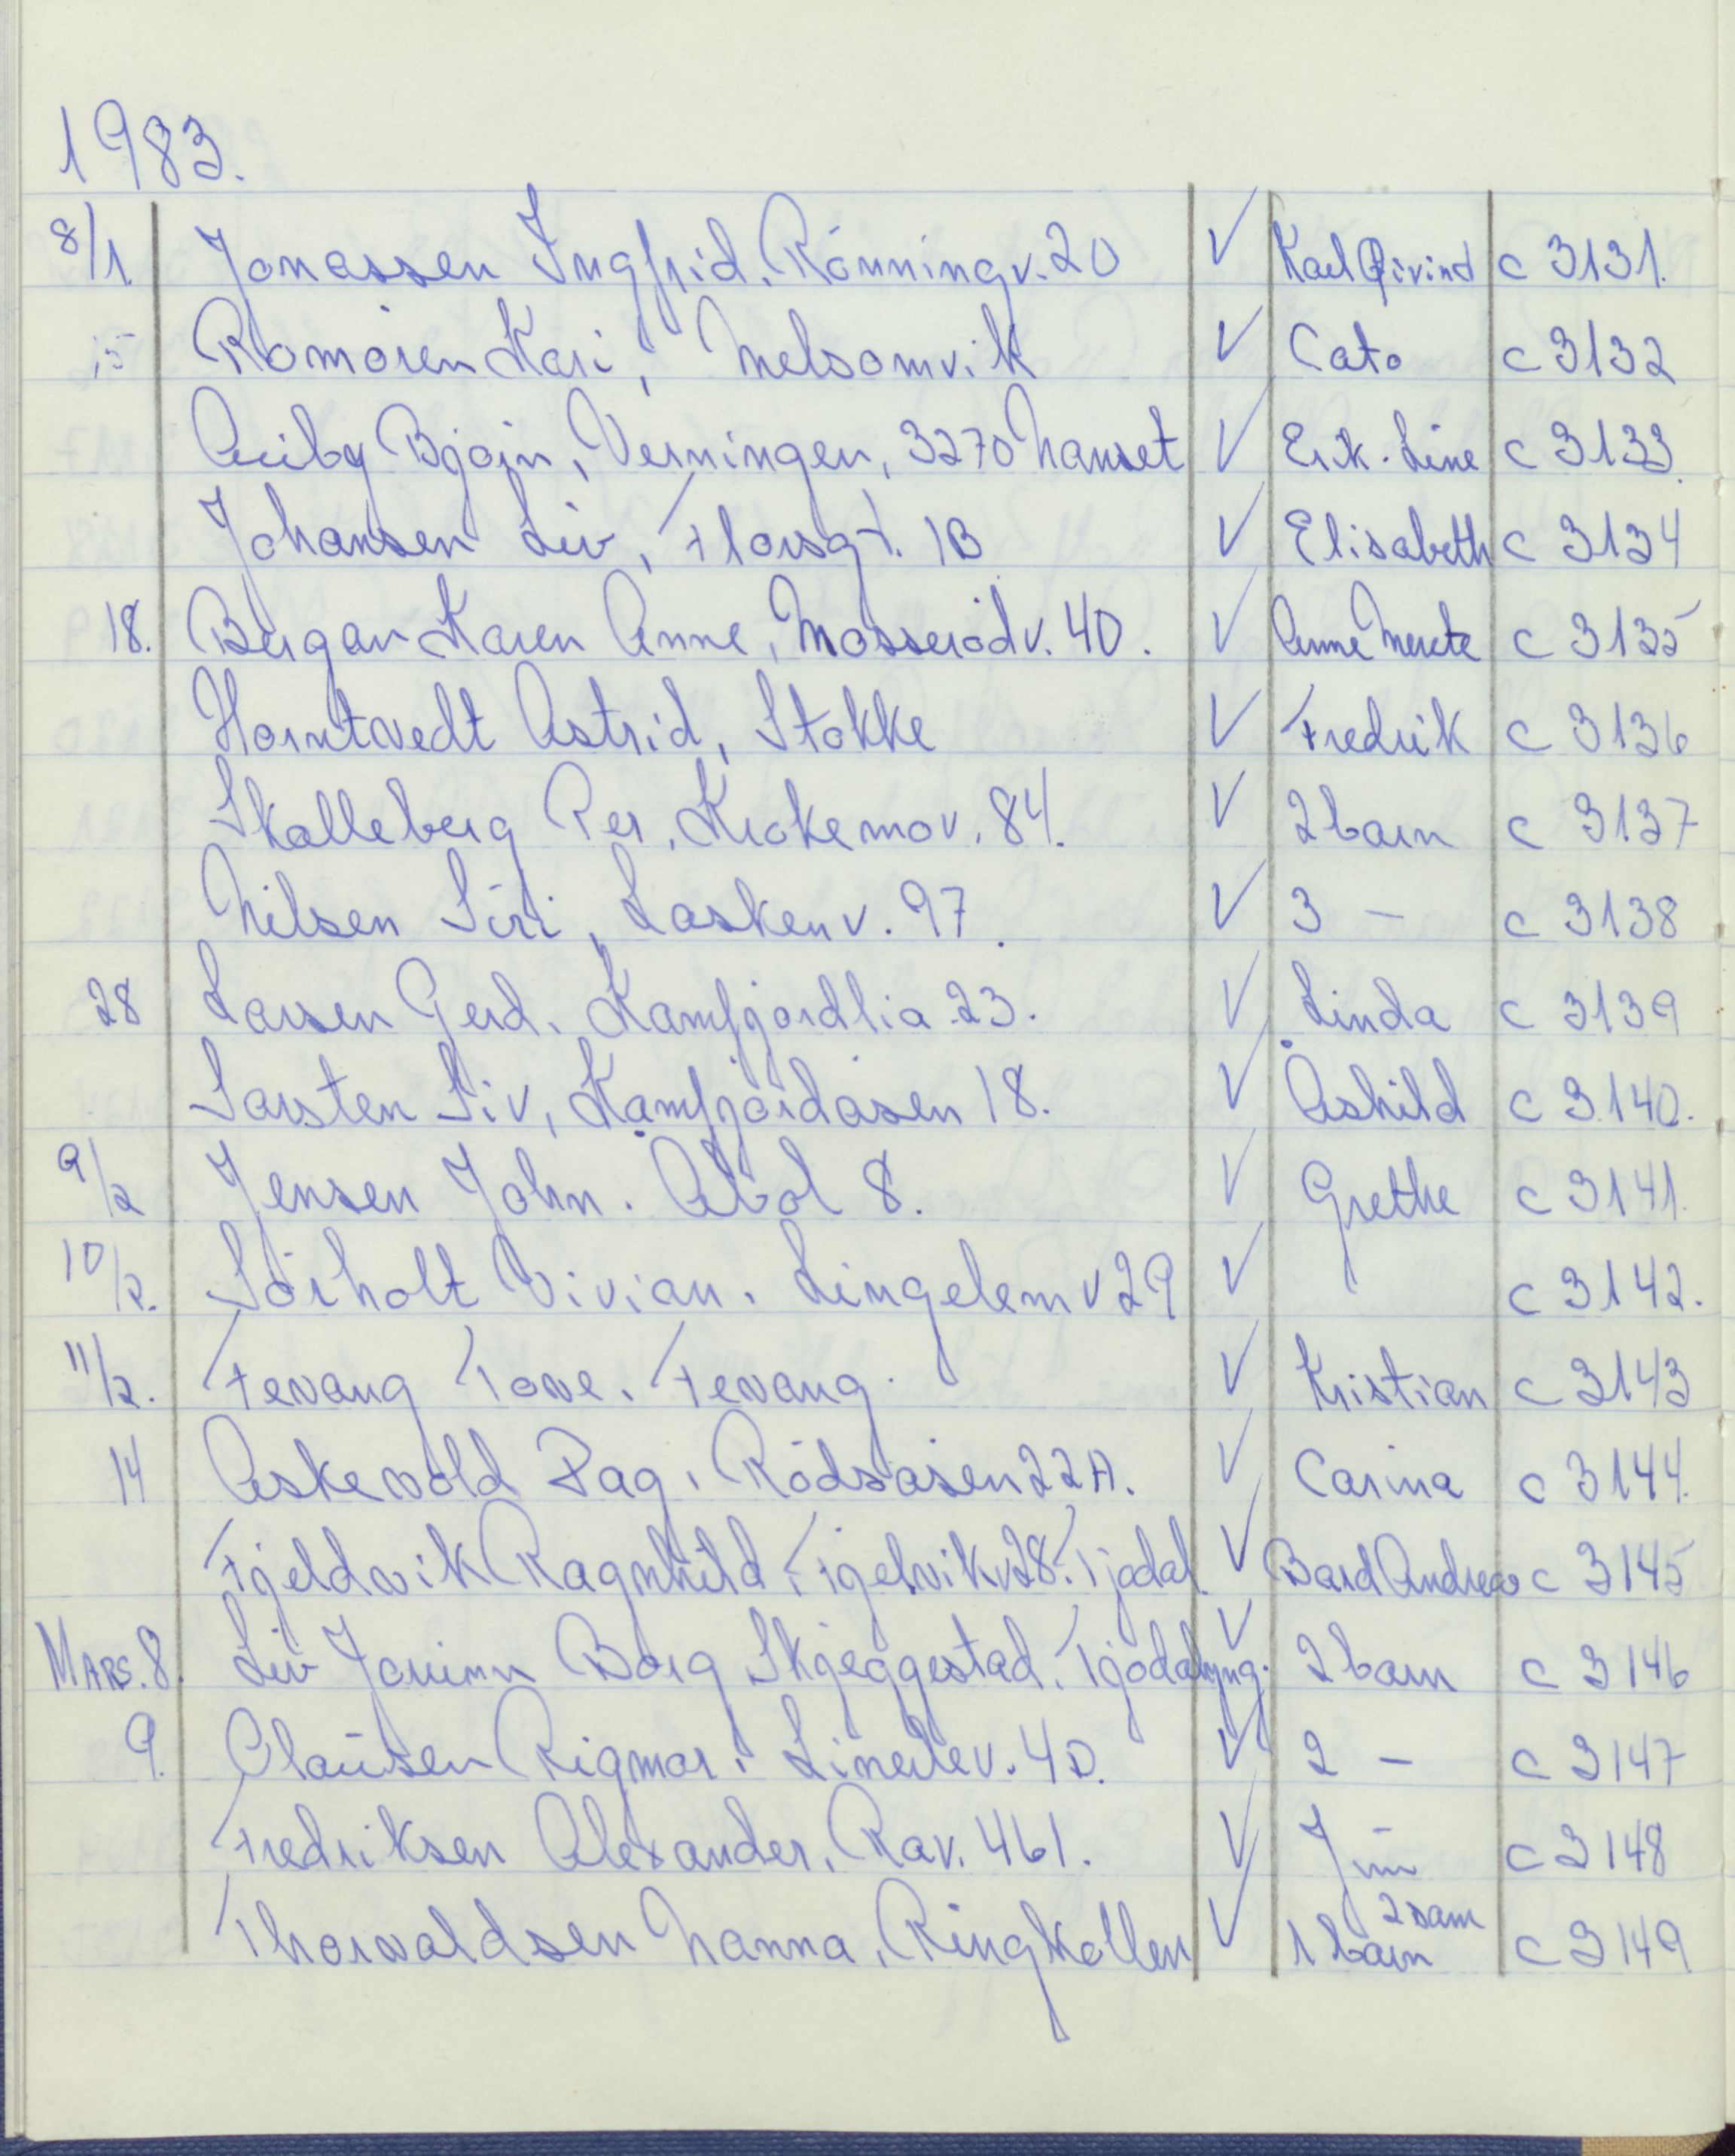 1983.
8/1 Jonassen Ingfrid. Rönningv. 20 ✓ Karl Øivind c 3131.
15 Romören Kari, Melsomvik ✓ Cato c 3132
Bjørn, Verningen, 3270 ✓ Erik. Line c 3133.
Johansen Liv, Florsgt. 1B ✓ Elisabeth c 3134
18. Bergan Karen Anne, Mosserödv. 40. ✓ Anne Merete c 3135
Horntvedt Astrid, Stokke ✓ Fredrik c 3136
Skalleberg Per, Krokemov. 84. ✓ 2 barn c 3137
Nilsen Siri, Laskenv. 97. ✓ 3 – c 3138
28 Larsen Gerd. Kamfjordlia 23. ✓ Linda c 3139
Sarsten Siv, Kamfjordåsen 18. ✓ Åshild c 3140.
9/2 Jensen John. Åbol 8. ✓ Grethe c 3141.
10/2. Sörholt Vivian. Lingelemv 29 ✓ c 3142.
11/2. Fevang Tove. Fevang. ✓ Kristian c 3143
14 Askevold Dag, Rödsåsen 22A. ✓ Carina c 3144.
Fjeldvik Ragnhild, Fjelvikv 28. Tjødal. ✓ Bård Andreas c 3145
Mars. 8. Liv Jorunn Borg Skjeggestad. Tjødalyng. ✓ 2 barn c 3146
9. Clausen Rigmor. Lindev. 40. ✓ 2 – c 3147
Fredriksen Alexander, Rav. 461. ✓ c 3148
Thorvaldsen Nanna, Ringkollen ✓ 1 barn 2 dam c 3149